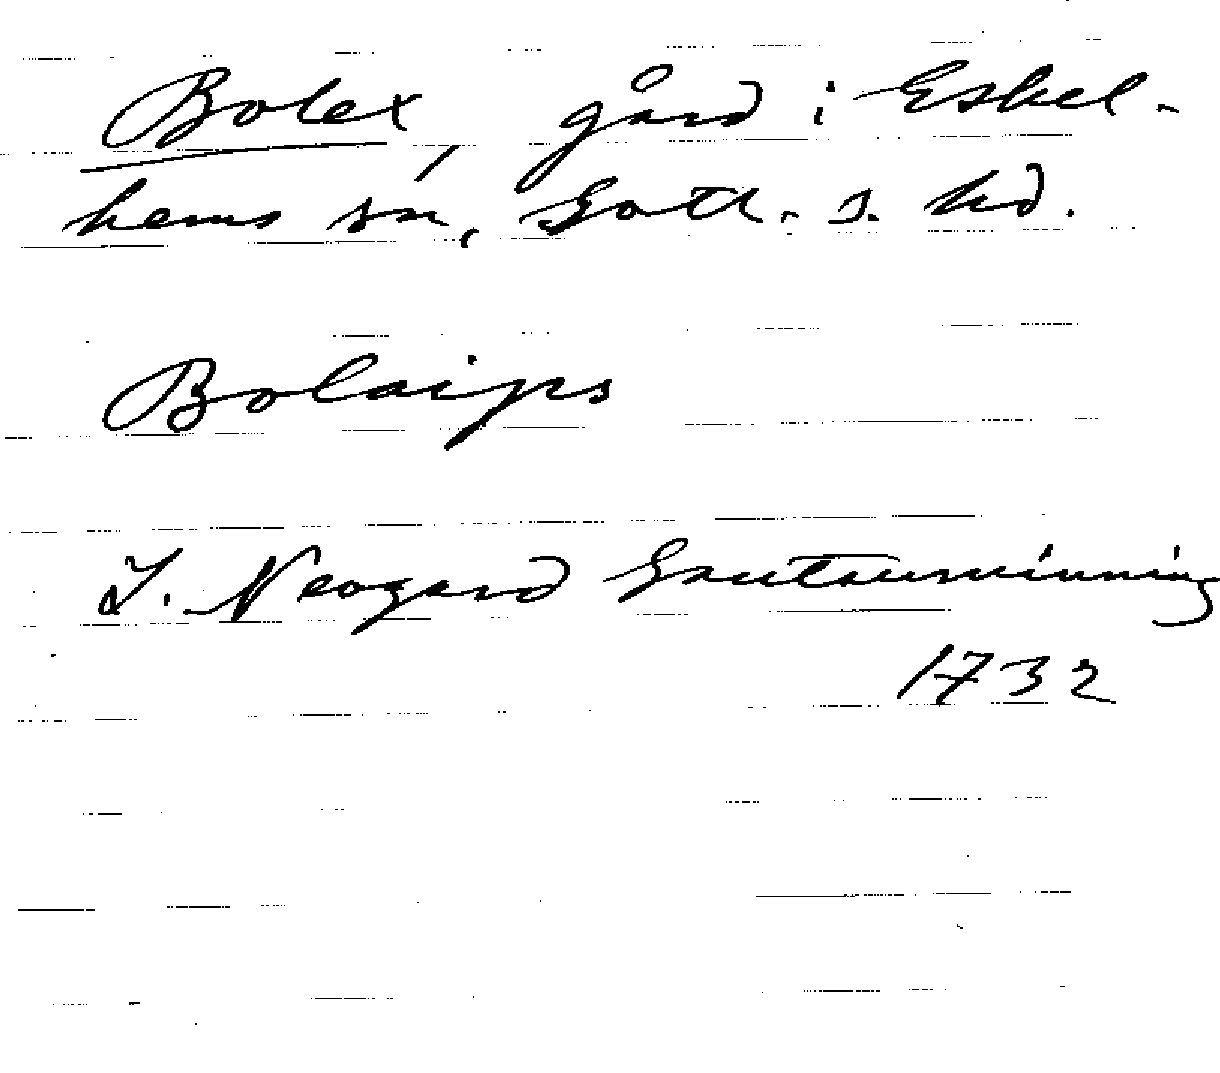 Bolex, gård i Eskel-
hems sn, Gotl. s. hd.
Bolaips
J. Neogard Gautauminning
1732